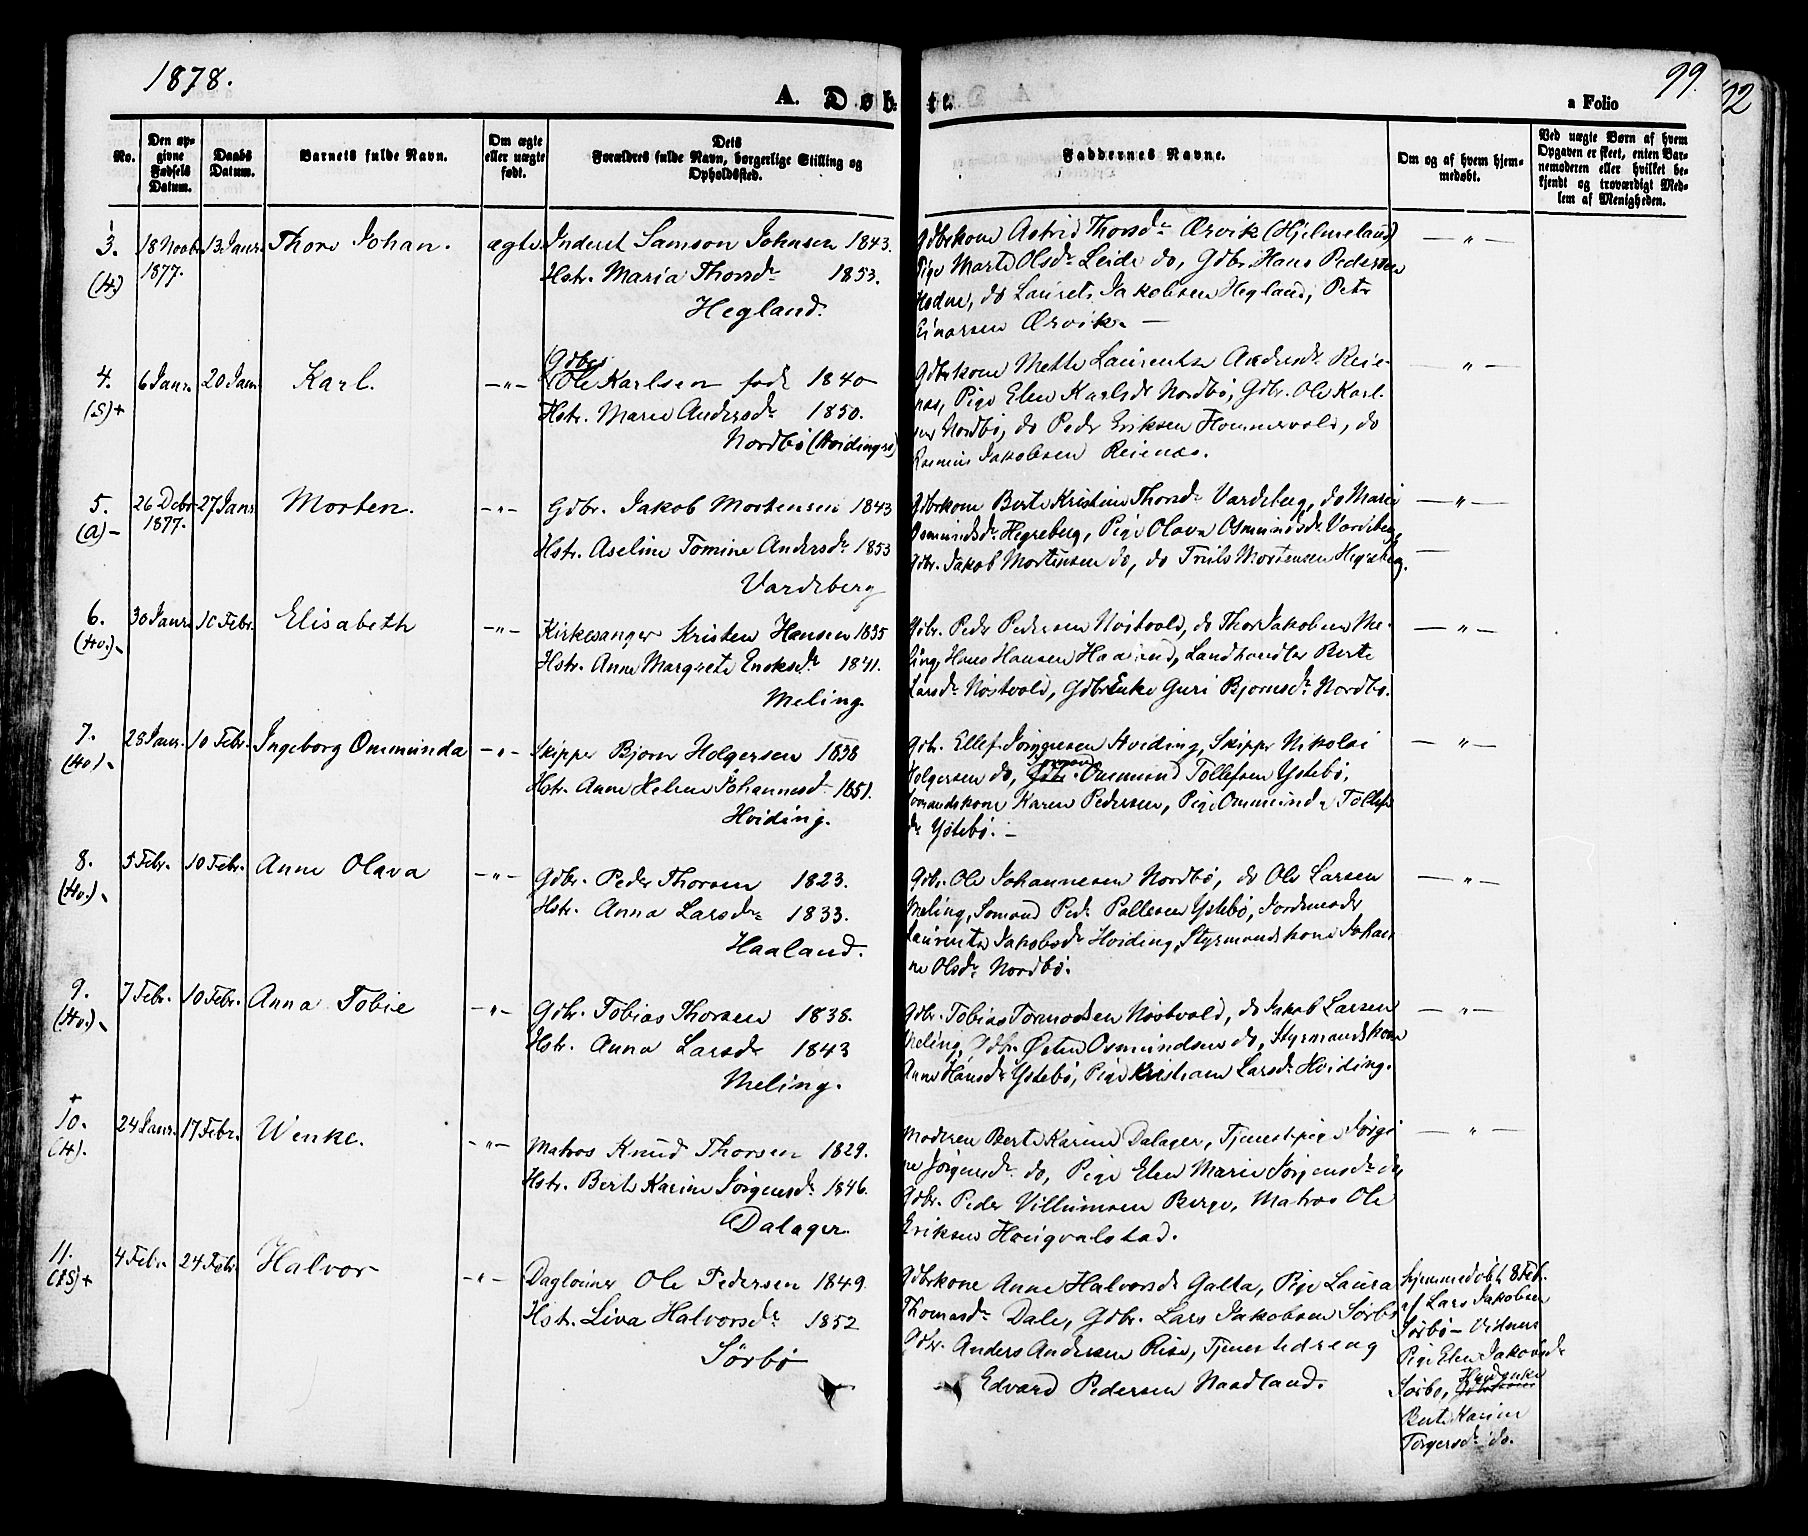 1878.
A. Døb-
te.
99.
a Folio
92
No.
Den op-
givne
Fødsels
Datum.
Daabs
Datum.
Barnets fulde Navn.
Om ægte
eller uægte
født.
Dets
Forældres fulde Navn, borgerlige Stilling og
Opholdssted.
Faddernes Navne.
Om og af hvem hjem-
medøbt.
Ved uægte Børn af hvem
Opgaven er skeet, enten Bar-
nemoderen eller hvilket be-
kjendt og troværdigt Med-
lem af Menigheden.
3.
(H.)
18 Novbr
1877.
13 Janr.
Thore Johan.
ægte
Inderst Samson Johnsen 1843.
Hstr. Maria Thorsdr 1853.
Hegland.
Gdbrkone Astrid Thorsdr Ørvik (Hjelmeland)
Pige Marte Olsdr Leide do, Gdbr. Hans Pedersen
Hodne, do Laurets Jakobsen Hegland, Peter
Einarsen Ørvik. —
— " —
4.
(S) +
6 Janr.
20 Janr
Karl.
— " —
Gdbr
Ole Karlsen født 1840
Hstr. Maren Andersdr 1850.
Nordbø (Hvidingsø)
Gdbrkone Mette Laurentse Andersdr Reie-
næs, Pige Elen Karlsdr Nordbø, Gdbr. Ole Karl-
sen Nordbø, do Peder Eriksen Hommervold, do
Rasmus Jakobsen Reienæs.
— " —
5.
(A) -
26 Debr
1877.
27 Janr
Morten.
— " —
Gdbr. Jakob Mortensen 1843
Hstr. Aseline Tomine Andersdr 1853
Vardeberg
Gdbrkone Berte Kristine Thorsdr Vardeberg, do Mari
Osmundsdr Hegreberg, Pige Olava Osmundsdr Vardeberg,
Gdbr. Jakob Mortensen do, do Truls Mortensen Hegreberg.
— " —
6.
(Hv.)
30 Janr.
10 Febr.
Elisabeth
— " —
Kirkesanger Kristen Hansen 1835
Hstr. Anne Margrete Enoksdr 1841.
Meling.
Gdbr. Peder Pedersen Nøstvold, do Thor Jakobsen Me-
ling, Hans Hansen Haaland, Landhandler Berte
Larsdr Nøstvold, Gdbr Enke Guri Bjornsdr Nordbø.
— " —
7.
(Hv.)
28 Janr.
10 Febr.
Ingeborg Ommunda
— " —
Skipper Bjorn Holgersen 1838
Hstr. Anne Helene Johannesdr 1851.
Hviding.
Gdbr. Ellef Jørgensen Hviding, Skipper Nikolai
Holgersen do, Ommund Tollefsen Ystebø,
Somandskone Karen Pedersen, Pige Ommunda Tollefs
dr Ystebø. —
— " —
8.
(Hv.)
5 Febr.
10 Febr.
Anne Olava
— " —
Gdbr. Peder Thorsen 1823.
Hstr. Anna Larsdr 1833.
Haaland.
Gdbr. Ole Johannesen Nordbø, do Ole Larsen
Meling, Somand Peder Pallesen Ystebø, Jordemoder
Laurentse Jakobsdr Hviding, Styrmandskone Johan-
ne Olsdr Nordbø.
— " —
9.
(Hv.)
7 Febr.
10 Febr.
Anna Tobie
— " —
Gdbr. Tobias Thorsen 1838.
Hstr. Anna Larsdr 1843
Meling.
Gdbr. Tobias Tormodsen Nøstvold, do Jakob Larsen
Meling, Gdbr. Østen Osmundsen do, Styrmandskone
Anne Hansdr Ystebø, Pige Kristiane Larsdr Hviding.
— " —
+
10.
(H).
24 Janr.
17 Febr.
Wenke.
— " —
Matros Knud Thorsen 1829.
Hstr. Berte Karine Jørgensdr 1846.
Dalager.
Moderen Berte Karine Dalager, Tjenestepige Jørgi
ne Jørgensdr do, Pige Elen Marie Jørgensdr do,
Gdbr. Peder Villumsen Berge, Matros Ole
Eriksen Hoigvalstad.
— " —
11.
(S) +
4 Febr.
24 Febr.
Halvor
— " —
Daglonner Ole Pedersen 1849.
Hstr. Liva Halvorsdr 1852
Sørbø
Gdbrkone Anne Halvorsdr Galta, Pige Laura
Thomasdr Dale, Gdbr. Lars Jakobsen Sørbø
Gdbr. Anders Andersen Risa, Tjenestedreng
Edvard Pedersen Naadland.
hjemmedøbt 8 Feb.
af Lars Jakobsen
Sørbø — Vidner
Pige Elen Jakobsdr
Sørbø,
Berte Karine
Torgersdr do.